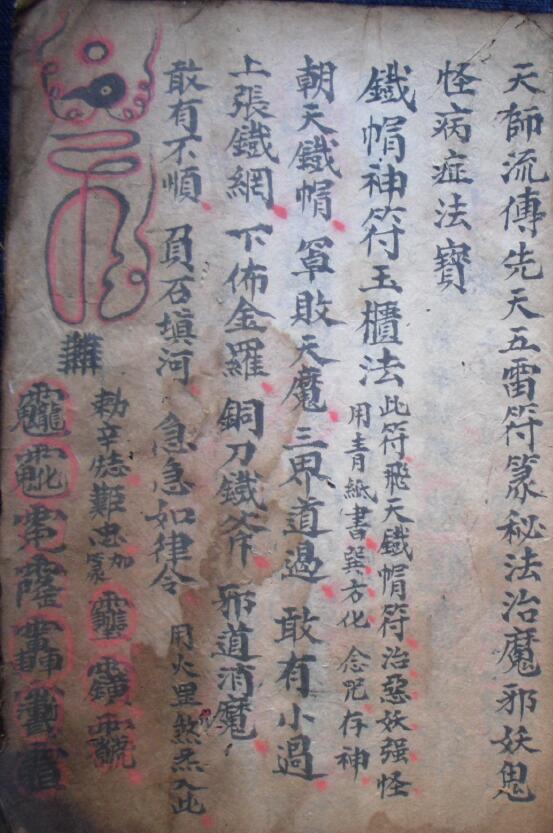 天師流傳先天五雷符篆秘法治魔邪妖鬼
怪病症法寶
鐵帽神符玉櫃法
此符飛天鐵帽符治惡妖强怪
用青紙書巽方化 念咒存神
朝天鐵帽 罩敗天魔 三界道過 敢有小過
上張鐵網 下佈金羅 銅刀鐵斧 邪道消魔
敢有不順 負石填河 急急如律令 用火罡煞炁入此
勅辛 難忠加篆